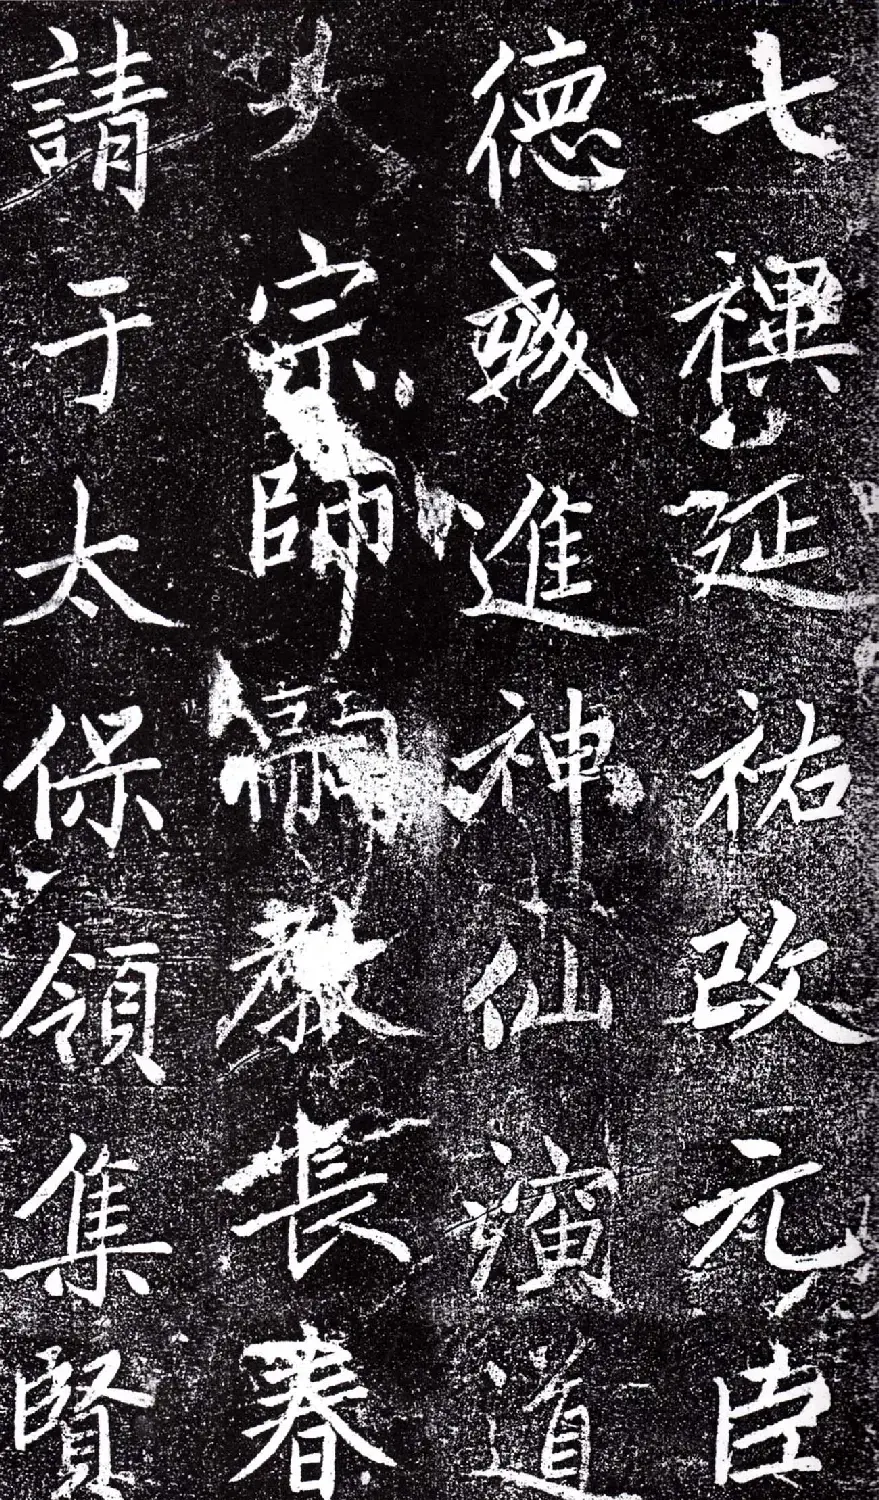 七禩延祐改元臣
德彧進神仙演道
大宗師嗣教長春
請于太保領集賢